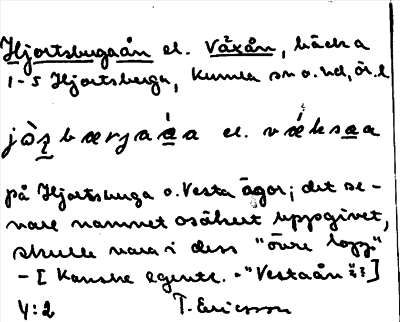 Hjortsbugaån el. Växån, bäck a
1-5 Hjortsberga, Kumla sn o. hd, ör. l
på Hjortsbuga o. Vesta ägor; det se-
nare namnet osäkert uppgivet,
skulle vara i dess "övre lopp"
-[Kanske egentl. - "Vestaån"]
4:2 T. Ericsson